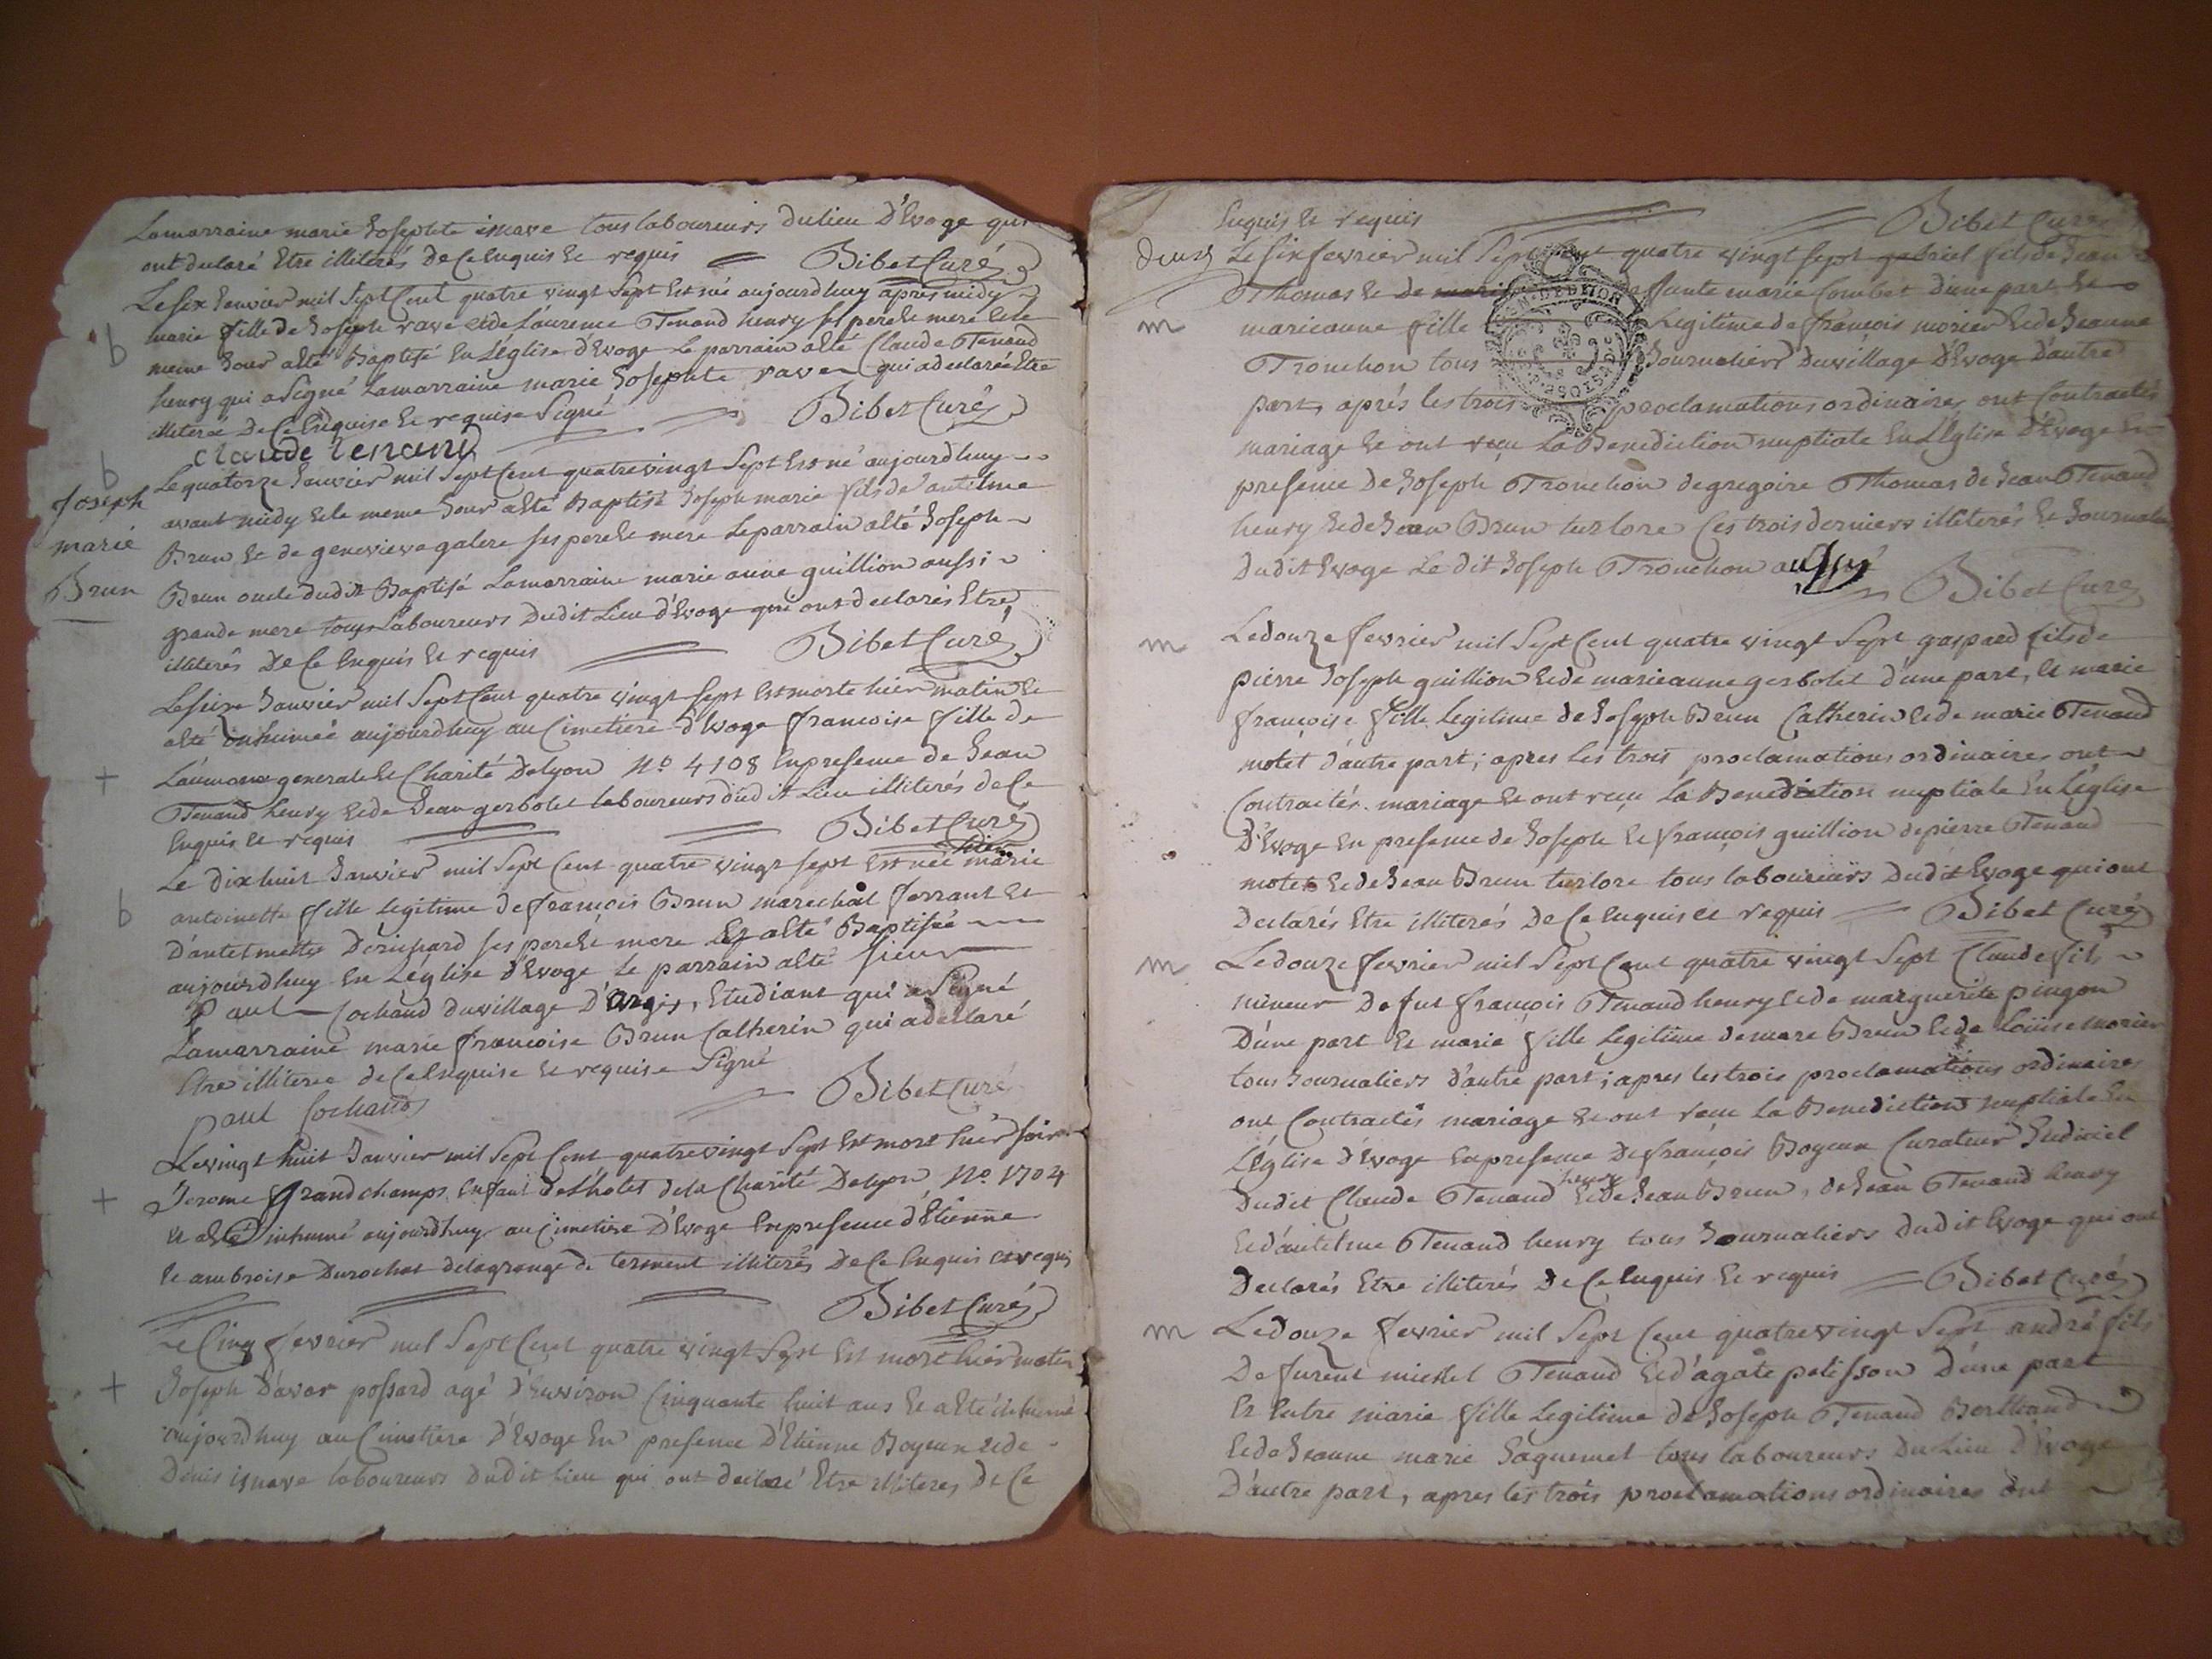 Lamarraine marie Josephte innave tous laboureurs dulieu D'Evoge qui
ont declaré Etre illiterés De Ce Enquis Et requis Bibet Curé
Le six Janvier mil Sept Cent quatre vingt Sept Est né aujourdhuy apres midy
b
marie fille de Joseph rave et de Laurence Tenand henry ses pere et mere Et le
meme Jour a été Baptisé En L'église d'Evoge Le parrain a été Claude Tenand
henry qui a Signé Lamarraine marie Josephte rave qui a declarée Etre
illiterée De Ce Enquise Et requise Signé Bibet Curé
Claude tenand
b
Joseph
marie
Brun
Le quatorze Janvier mil Sept Cent quatre vingt Sept Est né aujourdhuy
avant midy Et le meme Jour a été Baptisé Joseph marie fils de antelme
Brun Et de genevieve galere ses pere et mere Le parrain a été Joseph
Brun oncle dudit Baptisé Lamarraine marie anne guillion aussi
grande mere tous Laboureurs Dudit Lieu d'Evoge qui ont declarés Etre
illiterés De Ce Enquis Et requis Bibet Curé
Le seize Janvier mil Sept Cent quatre vingt Sept Est morte hier matin Et
a été inhumée aujourdhuy au Cimetiere d'Evoge francoise fille de
+
L'aumone generale Et Charité De lyon No 4108 En presence de Jean
Tenand henry Et de Jean gerbolet laboureurs dudit Lieu illiterés de Ce
Enquis Et requis Bibet Curé
hier
Le dix huit Janvier mil Sept Cent quatre vingt sept Est née marie
b
antoinette fille legitime de françois Brun marechal ferrant Et
D'antelmette Derichard ses pere et mere Et a été Baptisée
aujourdhuy En L'église d'Evoge Le parrain a été sieur
Paul Cochand du village D'argis, Etudiant qui a Signé
Lamarraine marie francoise Brun Catherin qui a declaré
Etre illiterée de Ce Enquise Et requise Signé
paul Cochand Bibet Curé
Le vingt huit Janvier mil Sept Cent quatre vingt Sept Est mort hier soir
+
Jerome grandchamps Enfant de L'hotel de la Charité De lyon No 1704
Et a été inhumé aujourdhuy au Cimetiere D'Evoge En presence d'Etienne
Et ambroise Durochat delagrange de terment illiterés De Ce Enquis et requis
Bibet Curé
Le Cinq fevrier mil Sept Cent quatre vingt Sept Est mort hier matin
+
Joseph Davar possard agé d'Environ Cinquante huit ans Et a été inhumé
aujourdhuy au Cimetiere D'Evoge En presence D'Etienne Boyeux et de
Denis innave laboureurs Dudit lieu qui ont declaré Etre illiteres De Ce
Enquis Et requis Bibet Curé
deux
Le six fevrier mil Sept Cent quatre vingt Sept gabriel fils de Jean
Thomas Et De marie Combet d'une part Et
m
marieanne fille Legitime de françois morier Et de Jeanne
Tronchon tous Journaliers Du village D'Evoge D'autre
part, après les trois proclamations ordinaires ont Contractés
mariage Et ont reçu La Benediction nuptiale En L'église D'Evoge En
presence De Joseph Tronchon de gregoire Thomas de Jean Tenand
henry Et de Jean Brun turlore Ces trois derniers illiterés Et Journaliers
Dudit Evoge Le dit Joseph Tronchon a Signé
Bibet Curé
m
Le douze fevrier mil Sept Cent quatre vingt Sept gaspard fils de
pierre Joseph guillion Et de marieanne gerbolet d'une part, Et marie
françoise fille Legitime de Joseph Brun Catherin Et de marie Tenand
motet d'autre part; apres les trois proclamations ordinaires ont
Contractés mariage Et ont reçu La Benediction nuptiale En L'église
D'Evoge En presence de Joseph Et françois guillion de pierre Tenand
motet Et de Jean Brun turlore tous laboureurs Dudit Evoge qui ont
Declarés Etre illiterés De Ce Enquis et requis Bibet Curé
m
Le douze fevrier mil Sept Cent quatre vingt Sept Claude fils
mineur De fut françois Tenand henry Et de marguerite pingon
D'une part Et marie fille Legitime de marc Brun Et de Louise morier
tous Journaliers d'autre part; apres les trois proclamations ordinaires
ont Contractés mariage Et ont recu La Benediction nuptiale En
L'église D'Evoge En presence De françois Boyeux Curateur Judiciel
Dudit Claude Tenand henry Et de Jean Brun, de Jean Tenand henry
Et d'antelme Tenand henry tous Journaliers dudit Evoge qui ont
Declarés Etre illiterés De Ce Enquis Et requis Bibet Curé
m
Le douze fevrier mil Sept Cent quatre vingt Sept andré fils
De furent michel Tenand Et d'agate pelisson d'une part
Et Entre marie fille Legitime de Joseph Tenand Berthand
Et de Jeanne marie Jaquemet tous laboureurs Du Lieu D'Evoge
D'autre part, apres les trois proclamations ordinaires ont